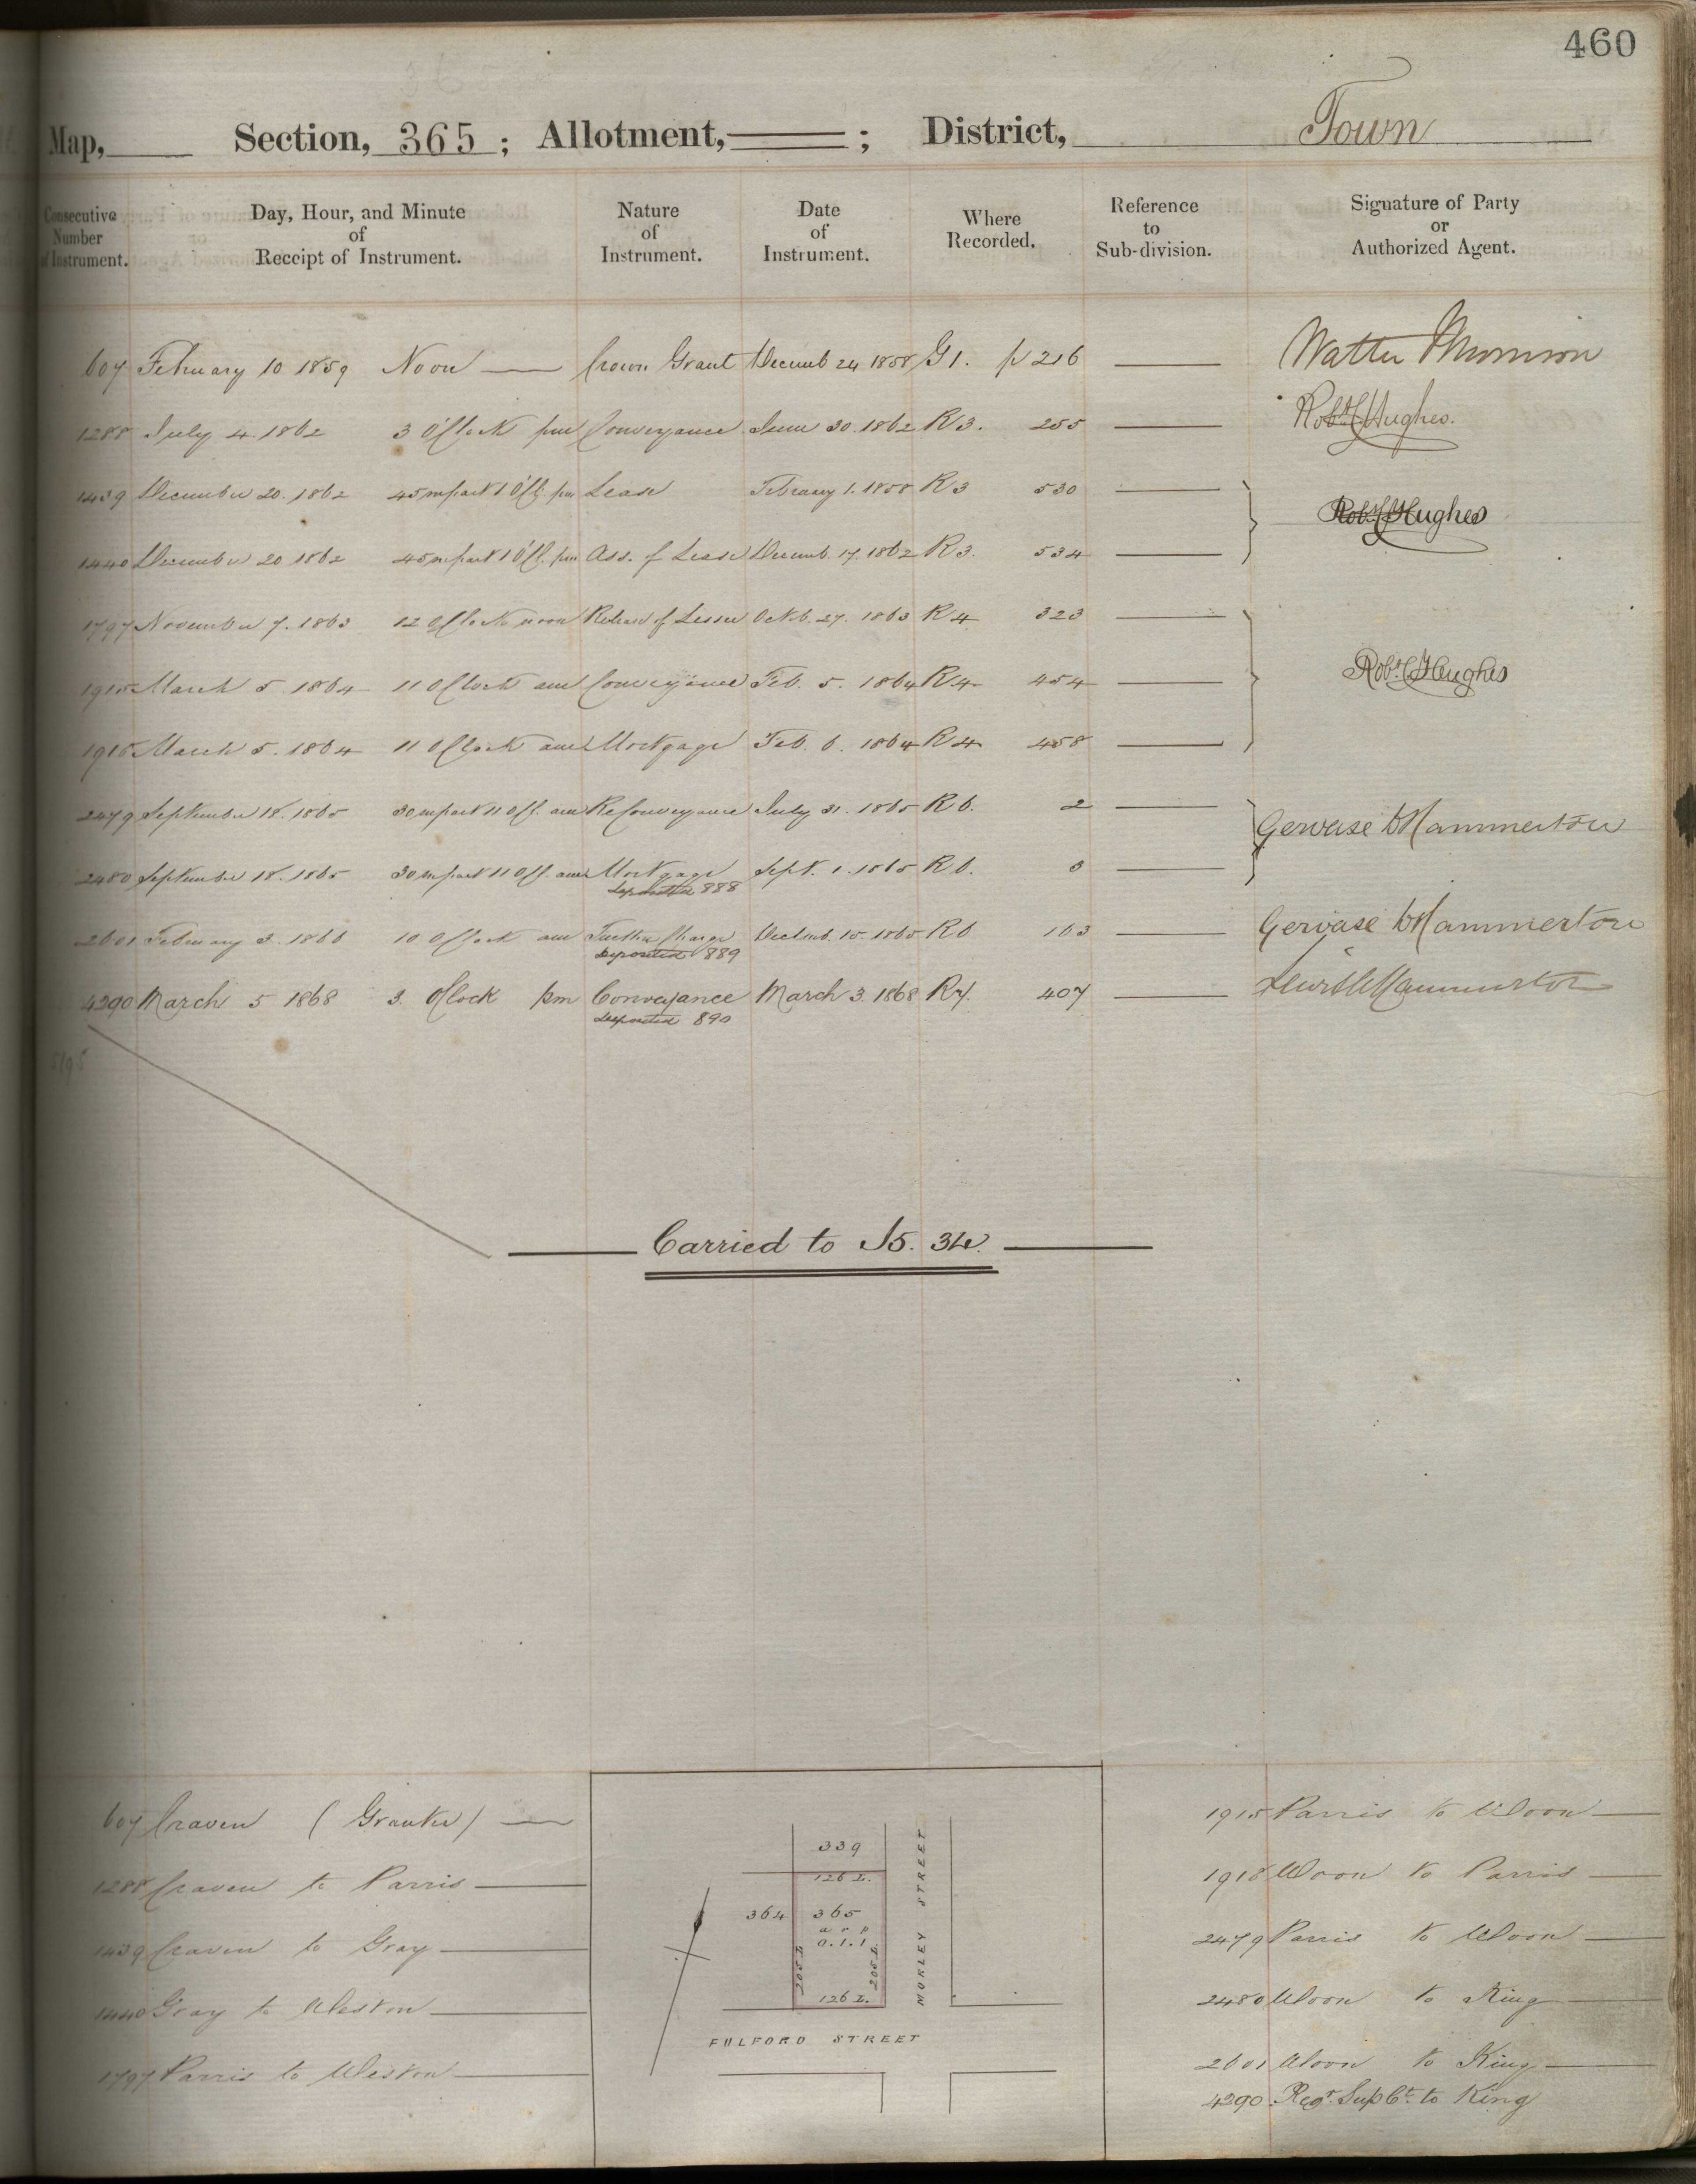 460
Map, Section, 365 ; Allotment, ; District, Town
Consecutive Number of Instrument.
Day, Hour, and Minute of Receipt of Instrument.
Nature of Instrument.
Date of Instrument.
Where Recorded.
Reference to Sub-division.
Signature of Party or Authorized Agent.
607 February 10 1859 Noon Crown Grant Decemb 24 1858 G 1. p 216 Walter Morrison
1288 July 4 1862 3 O'Clock pm Conveyance June 30. 1862 R 3. 255 Robt. C Hughes.
1439 December 20. 1862 45 m past 1 O'Cl. pm Lease February 1. 1858 R 3 530
Robt. C Hughes
1440 December 20 1862 45 m past 1 O'Cl. pm Ass. of Lease Decemb. 17. 1862 R 3. 534
1797 November 7. 1863 12 OClock noon Release of Lessee Octob. 27. 1863 R 4 323
1915 March 5. 1864 11 OClock am Conveyance Feb. 5. 1864 R 4 454 Robt. C Hughes
March 5. 1864 11 OClock am Mortgage Feb. 6. 1864 R 4 458
2479 September 18. 1865 30 m past 11 OCl. am ReConveyance July 31. 1865 R 6. 2
Gervase D Hammerton
2480 September 18. 1865 30 m past 11 OCl. am Mortgage Sept. 1. 1865 R 6. 3
Deposited 888
2601 February 3. 1866 10 OClock am Further Charge 15. 1865 R 6 163 Gervase D Hammerton
Deposited 889
4290 March 5 1868 3. OClock pm Conveyance March 3. 1868 R 7. 407 Hammerton
Deposited 890
5195
Carried to I5. 34.
607 Craven (Grantee)
1288 Craven to Parris
1439 Craven to Gray
1440 Gray to Weston
1797 Parris to Weston
339
126 L.
364 365
a r p
0.1.1
205 L.
205 L.
126 L.
MORLEY STREET
FULFORD STREET
1915 Parris to Woon
1918 Woon to Parris
2479 Parris to Woon
2480 Woon to King
2601 Woon to King
4290 Regr. Sup Ct. to King